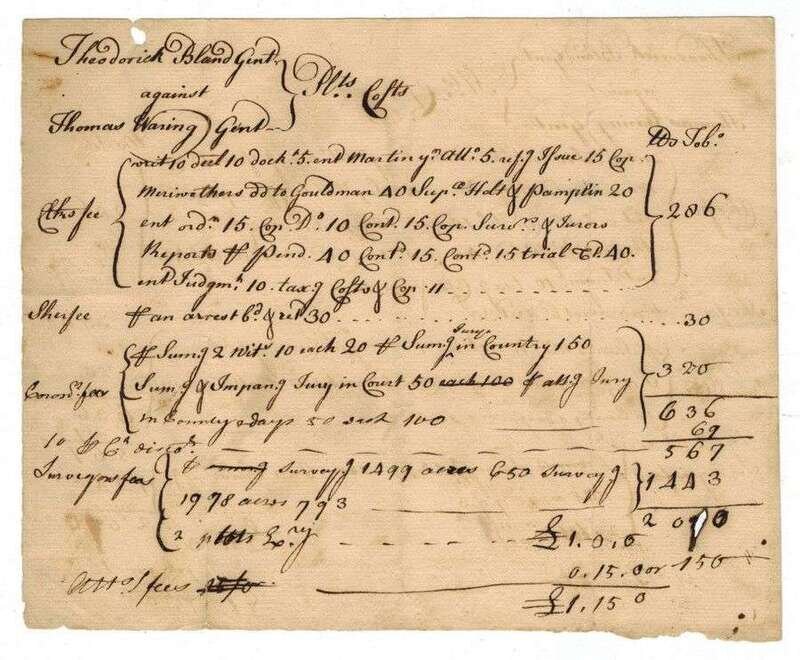 Theodorick Bland Gent
against
Thomas Waring Gent
Plts. Costs
lbs Tobo.
Clks fee
writ 10 decl 10 dockt. 5. ent Martin yr Atto 5. refg Issue 15 Cop.
Meriwethers dd to Gouldman 40 Supa Holt & Pamplin 20
ent ordr 15. Cop. Do. 10 Cont. 15. Cop. Survrs. & Jurors
Reports & Pend. 40 Cont. 15. Cont. 15 trial &c. 40.
ent Judgmt. 10. taxg Costs & Cop. 11
286
Sher fee # an arrest bd & ret 30 30
Corors. fees
# Sumg 2 Wits. 10 each 20 # Sumg Jury in Country 150
Sumg & Impang Jury in Court 50 each 100 # attg Jury
in County 2 days 50 each 100
320
636
10 P Ct. disct. 69
567
Surveyors fees
surveyg 1499 acres 650 Surveyg
1978 acres 793
1443
2010
2 platts £1.0.0
Attos fees 0.15.0 or 150
£1.15 0